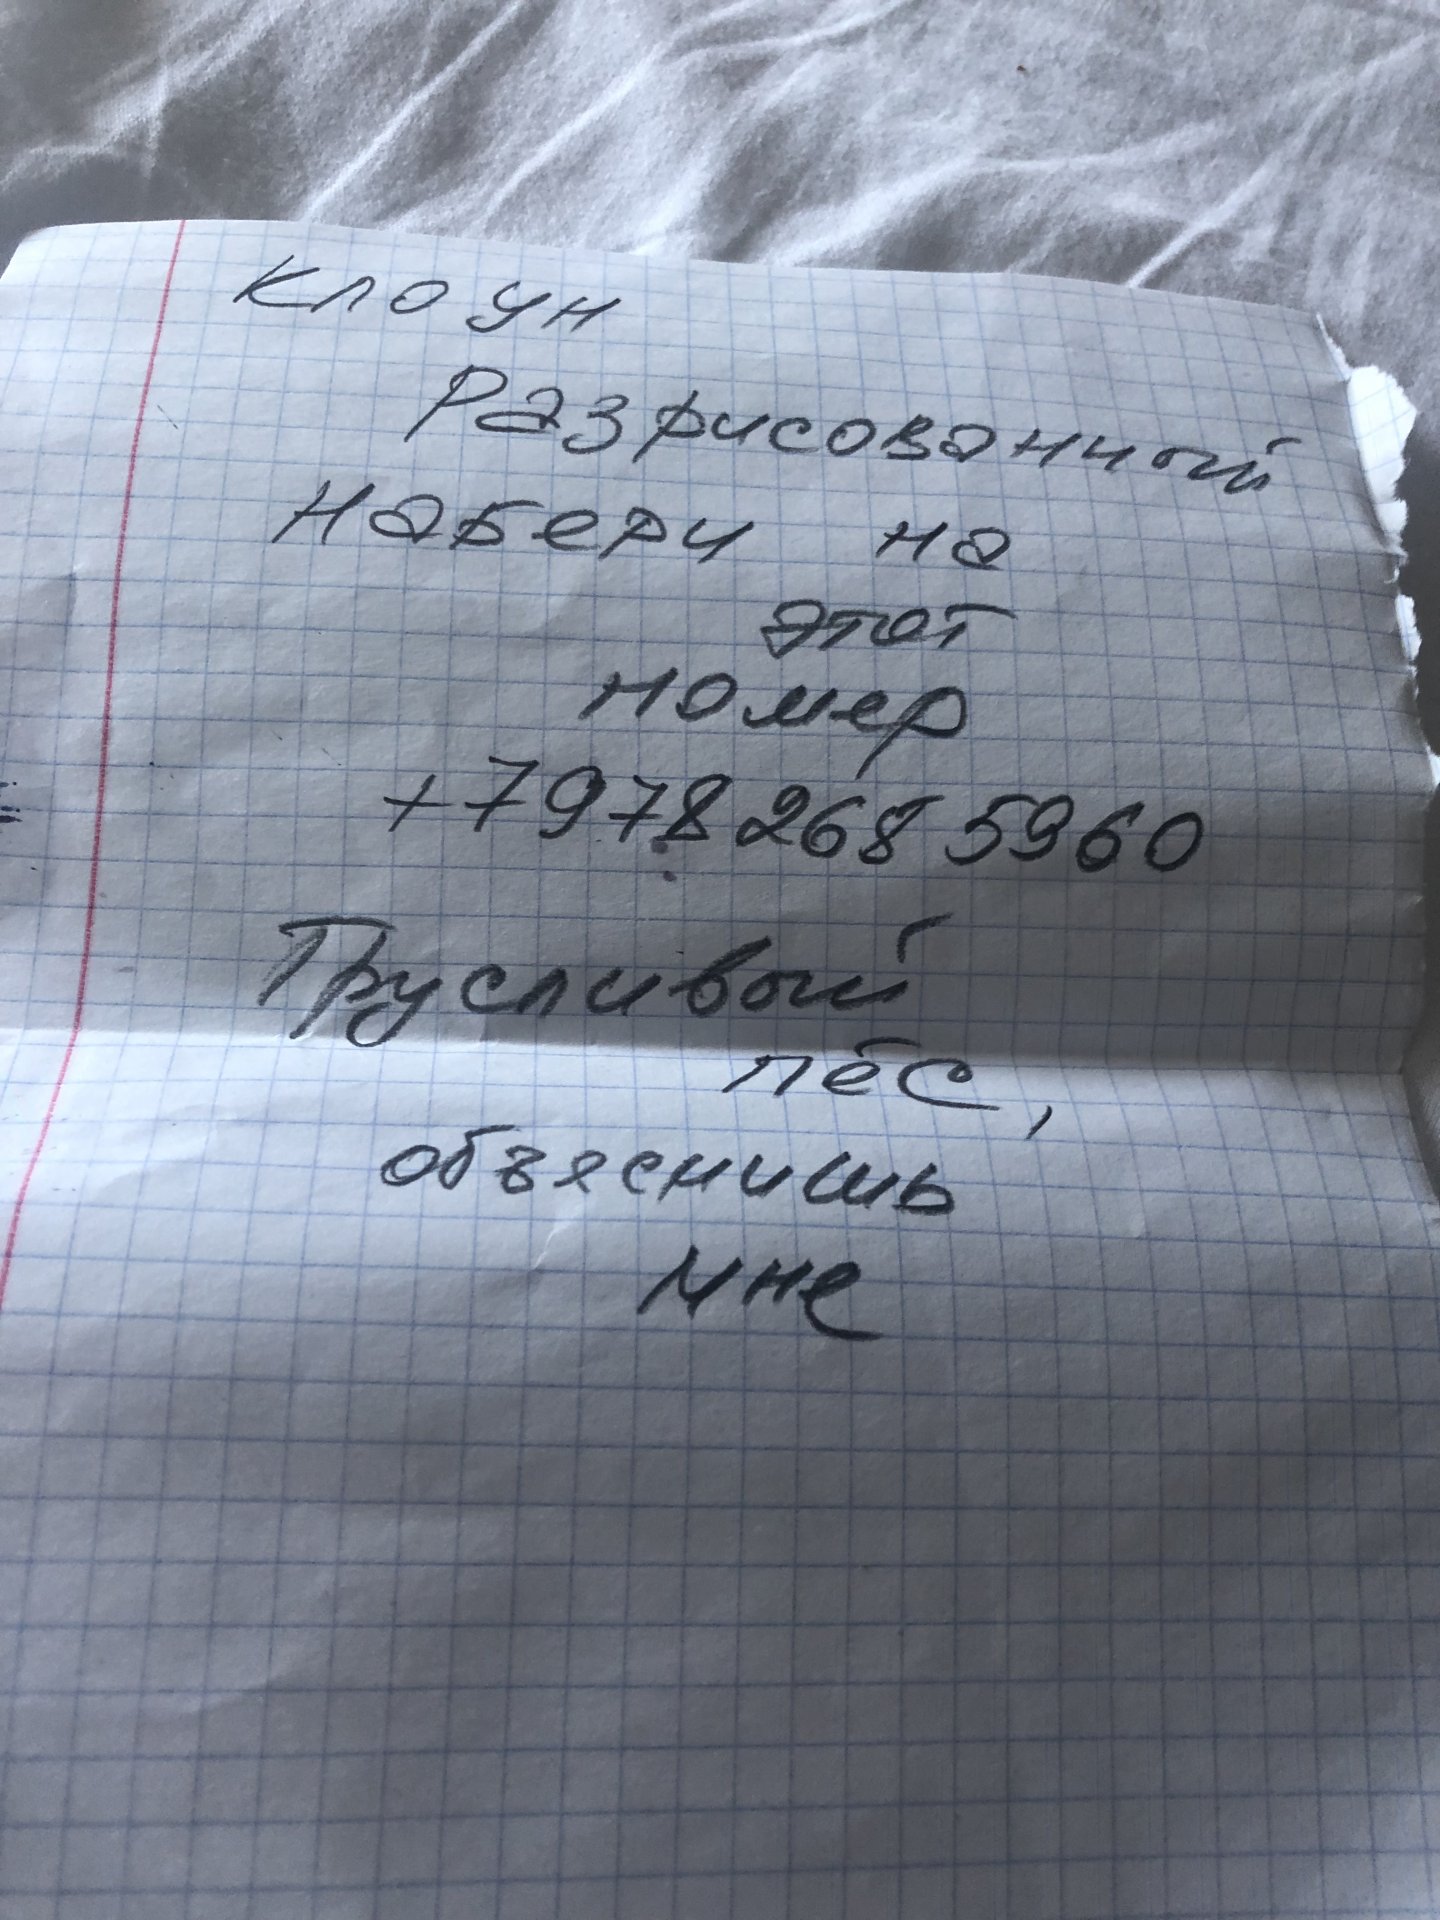 Клоун
Разрисованный
Набери на
этот
номер
+79782685960
Трусливый
пёс,
объяснишь
мне